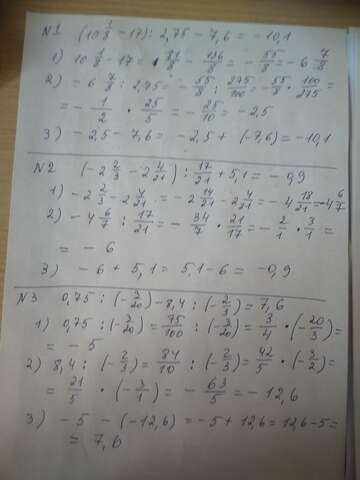 N1 (10 1/8 - 17) : 2,75 - 7,6 = -10,1
1) 10 1/8 - 17 = 81/8 - 136/8 = - 55/8 = -6 7/8
2) -6 7/8 : 2,75 = - 55/8 : 275/100 = - 55/8 · 100/275 =
= - 1/2 · 25/5 = - 25/10 = -2,5
3) -2,5 - 7,6 = -2,5 + (-7,6) = -10,1
N2 (-2 2/3 - 2 4/21) : 17/21 + 5,1 = -0,9
1) -2 2/3 - 2 4/21 = -2 14/21 - 2 4/21 = -4 18/21 = -4 6/7
2) -4 6/7 : 17/21 = - 34/7 · 21/17 = - 2/1 · 3/1 =
= -6
3) -6 + 5,1 = 5,1 - 6 = -0,9
N3 0,75 : (-3/20) - 8,4 : (-2/3) = 7,6
1) 0,75 : (-3/20) = 75/100 : (-3/20) = 3/4 · (-20/3) =
= -5
2) 8,4 : (-2/3) = 84/10 : (-2/3) = 42/5 · (-3/2) =
= 21/5 · (-3/1) = - 63/5 = -12,6
3) -5 - (-12,6) = -5 + 12,6 = 12,6 - 5 =
= 7,6